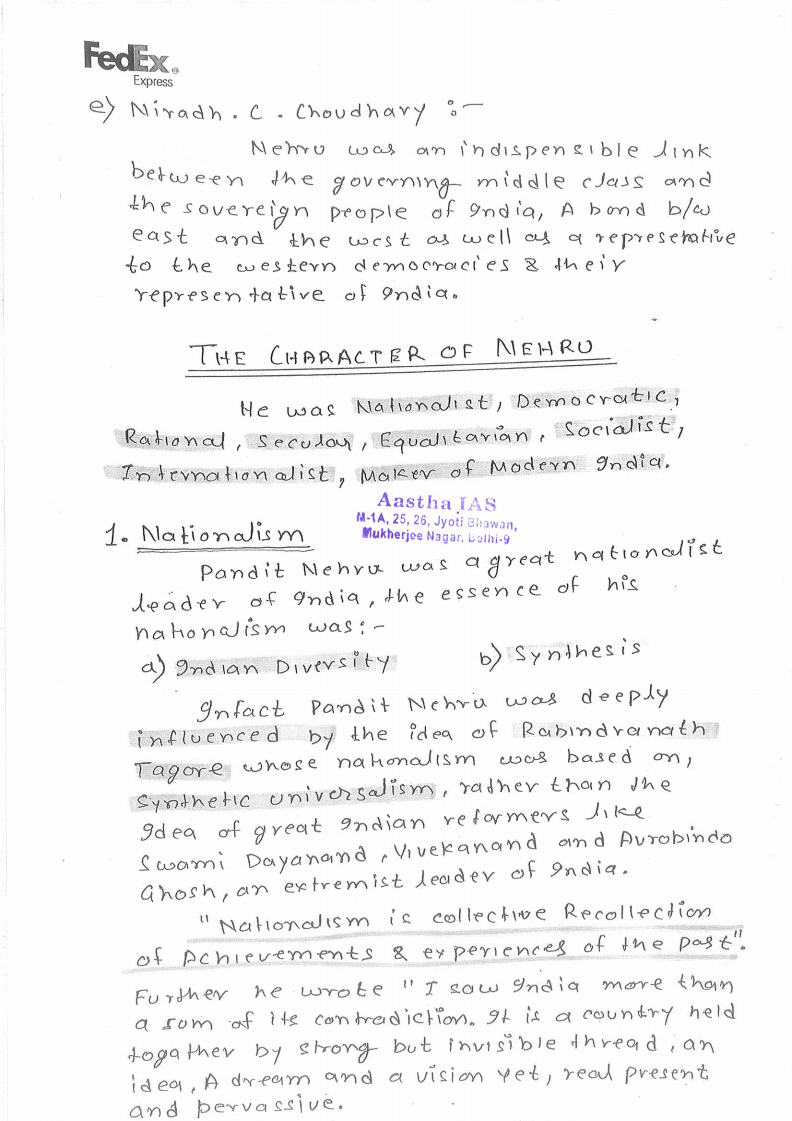 FedEx®
Express
e) Niradh . C . Choudhary :-
Nehru was an indispensible link
between the governing middle class and
the sovereign people of India, A bond b/w
east and the west as well as a represetative
to the western democracies & their
representative of India.
THE CHARACTER OF NEHRU
He was Nationalist, Democratic,
Rational, Secular, Equalitarian, Socialist,
Internationalist, Maker of Modern India.
Aastha IAS
M-1A, 25, 26, Jyoti Bhawan,
Mukherjee Nagar, Delhi-9
1. Nationalism
Pandit Nehru was a great nationalist
leader of India, the essence of his
nationalism was:-
a) Indian Diversity b) Synthesis
Infact Pandit Nehru was deeply
influenced by the idea of Rabindranath
Tagore whose nationalism was based on,
Synthetic universalism, rather than the
Idea of great Indian reformers like
Swami Dayanand, Vivekanand and Aurobindo
Ghosh, an extremist leader of India.
"Nationalism is collective Recollection
of Achievements & experiences of the past".
Further he wrote "I saw India more than
a sum of its contradiction. It is a country held
togather by strong but invisible thread, an
idea, A dream and a vision yet, real present
and pervassive.